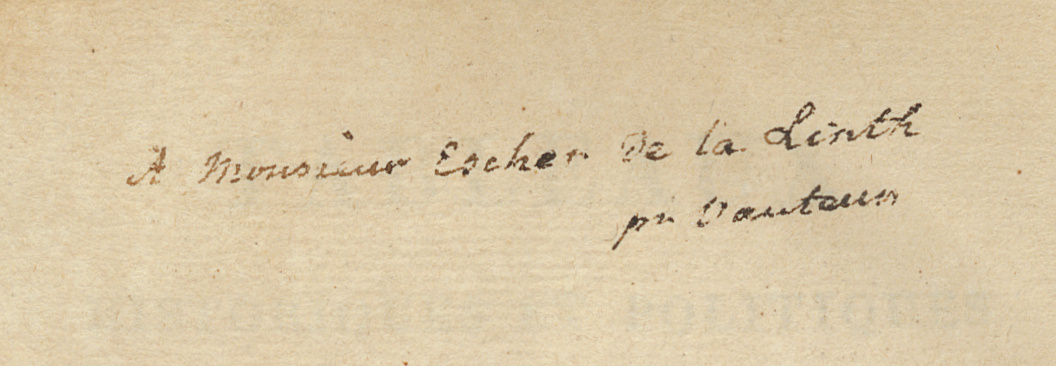 A Monsieur Escher De la Linth
pr l'auteur